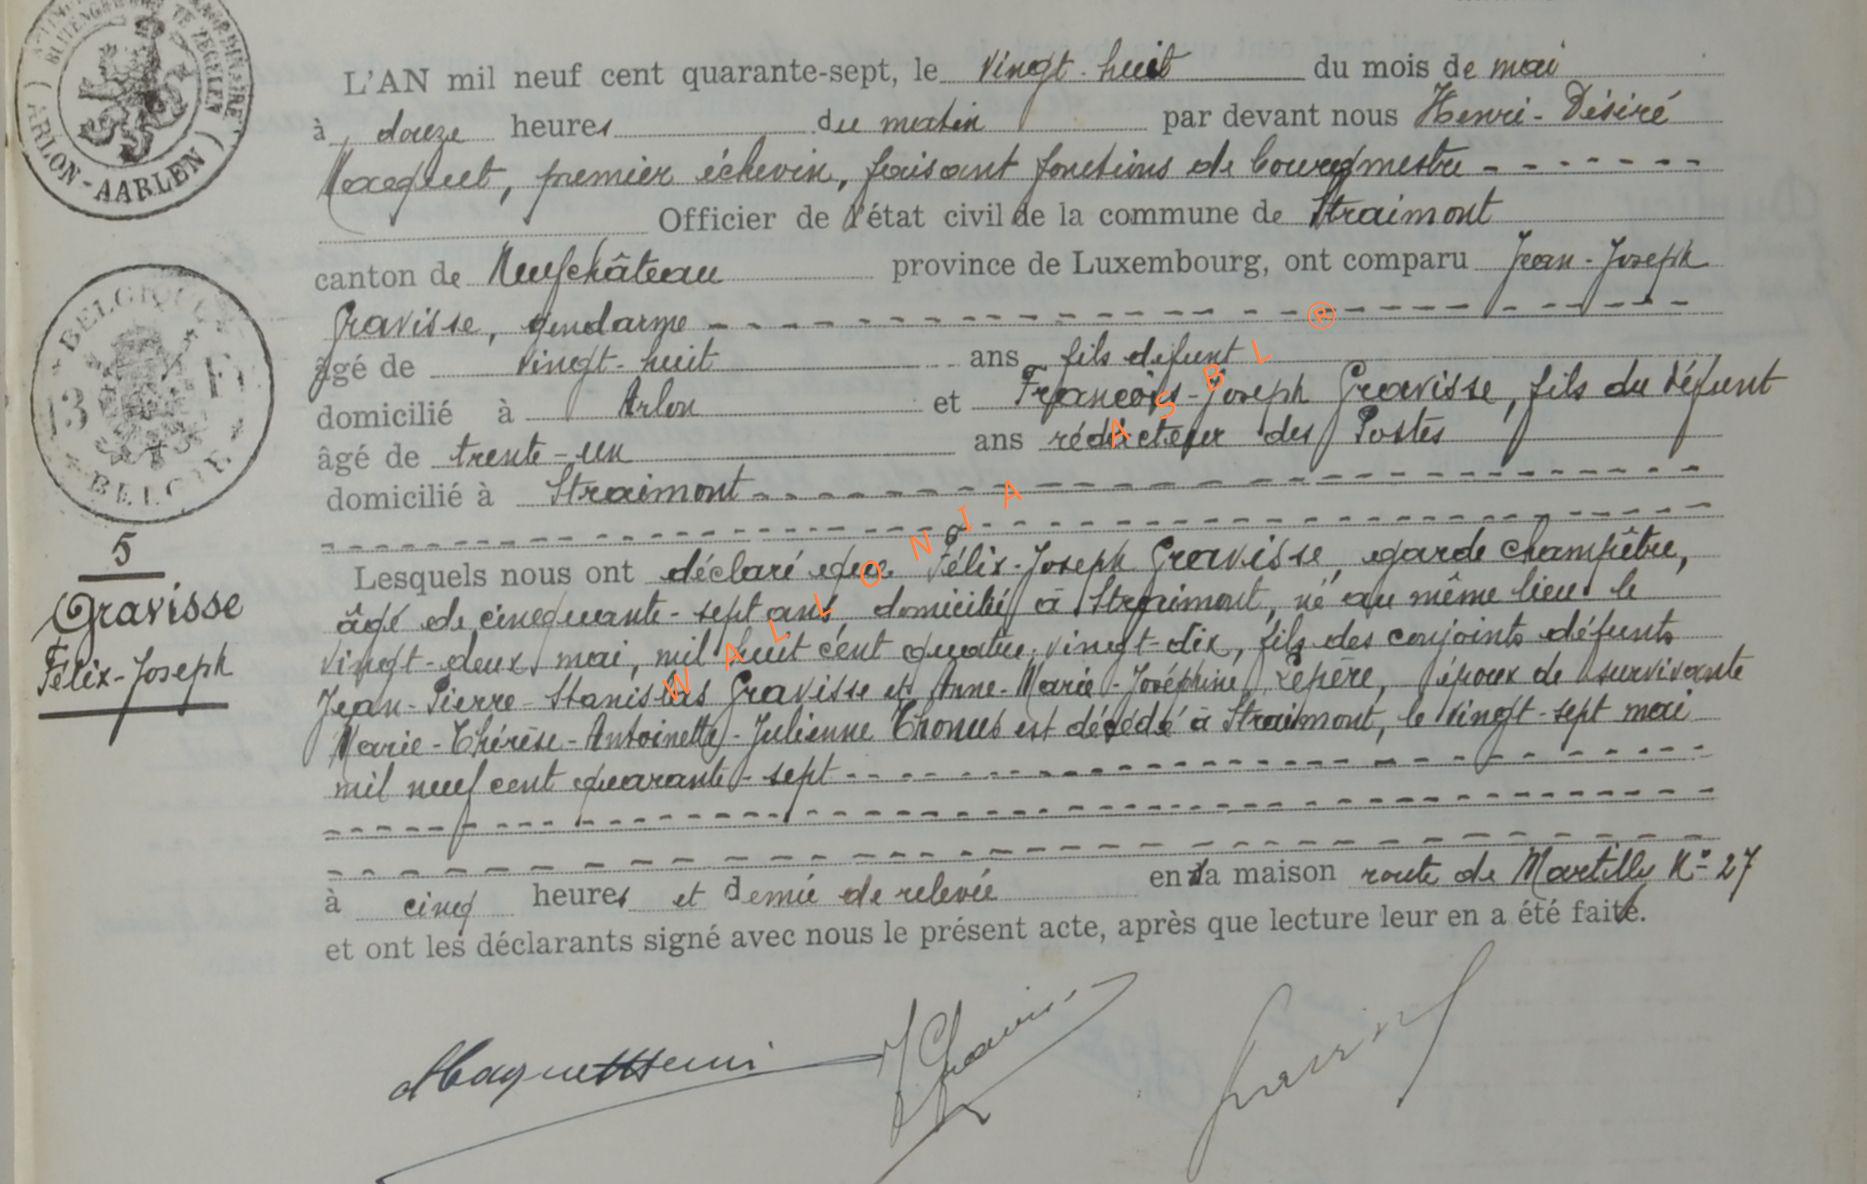 ARLON-AARLEN
BELGIQUE
3 F
BELGIE
5
Gravisse
Félix-Joseph
L'AN mil neuf cent quarante-sept, le vingt-huit du mois de mai
à douze heures du matin par devant nous Henri-Désiré
Macquet, premier échevin, faisant fonctions de bourgmestre
Officier de l'état civil de la commune de Straimont
canton de Neufchâteau province de Luxembourg, ont comparu Jean-Joseph
Gravisse, gendarme
âgé de vingt-huit ans fils défunt
domicilié à Arlon et François-Joseph Gravisse, fils du défunt
âgé de trente-un ans rédacteur des Postes
domicilié à Straimont
Lesquels nous ont déclaré que Félix-Joseph Gravisse, garde champêtre,
âgé de cinquante-sept ans, domicilié à Straimont, né au même lieu le
vingt-deux mai, mil huit cent quatre-vingt-dix, fils des conjoints défunts
Jean-Pierre-Stanislas Gravisse et Anne-Marie-Joséphine Lepère, époux de survivante
Marie-Thérèse-Antoinette-Julienne Thonus est décédé à Straimont, le vingt-sept mai
mil neuf cent quarante-sept
à cinq heures et demie de relevée en la maison route de Martilly N° 27
et ont les déclarants signé avec nous le présent acte, après que lecture leur en a été faite.
WALLONIA ASBL ®